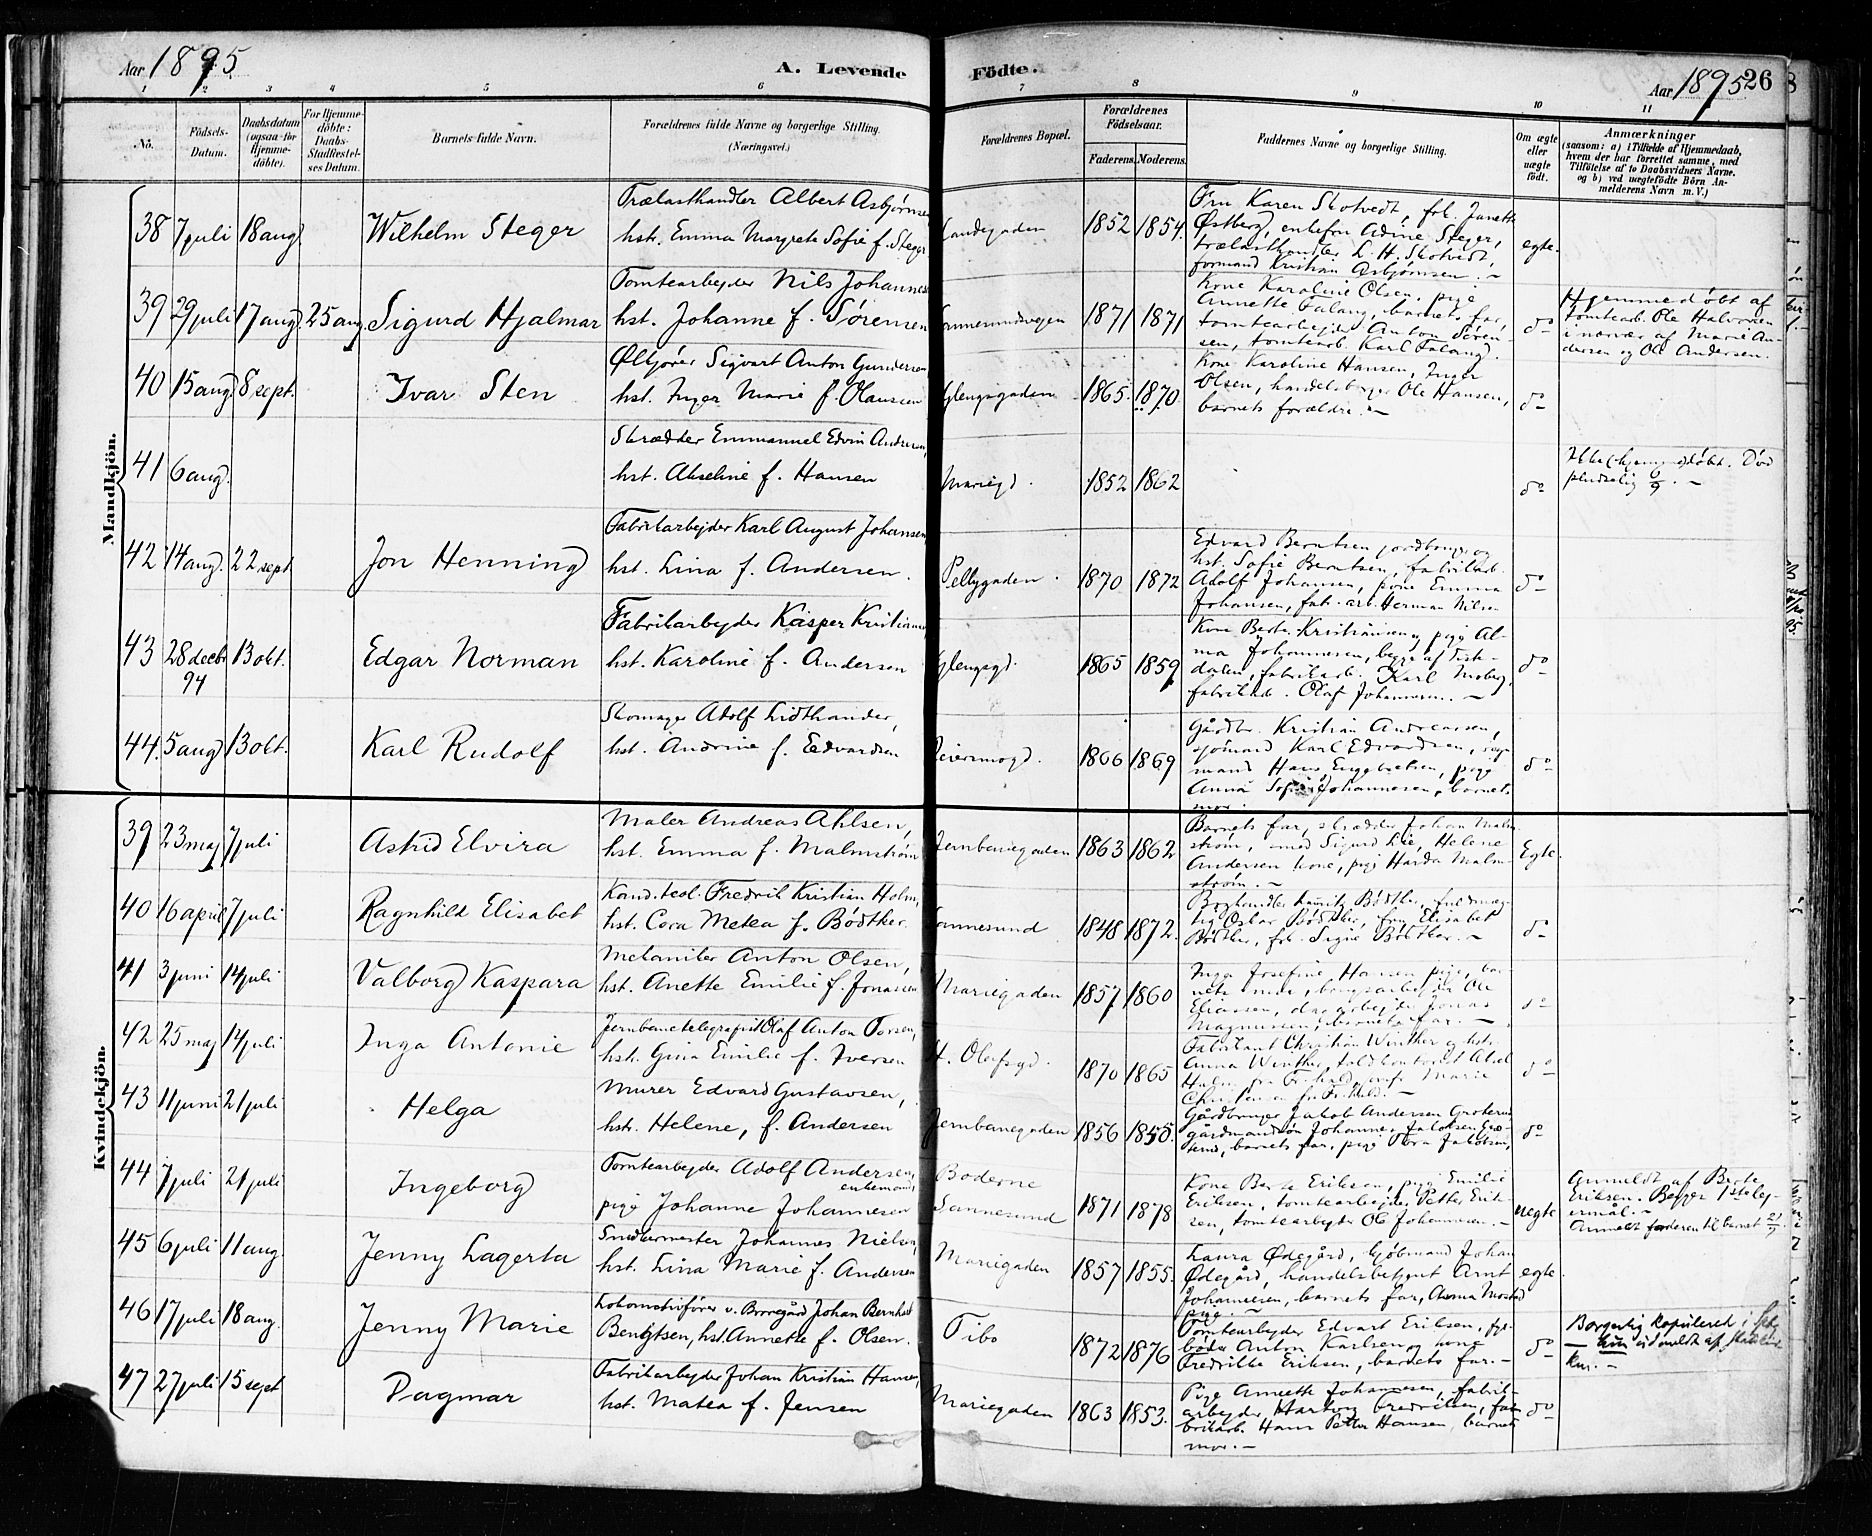 Aar 1895 A. Levende Födte. Aar 1895 26
1 2 3 4 5 6 7 8 9 10 11
No. Födsels-Datum. Daabsdatum (ogsaa for Hjemme-döbte). For Hjemme-döbte: Daabs-Stadfæstel-ses Datum. Barnets fulde Navn. Forældrenes fulde Navne og borgerlige Stilling. (Næringsvei.) Forældrenes Bopæl. Forældrenes Födselsaar. Faderens. Moderens. Faddernes Navne og borgerlige Stilling. Om ægte eller uægte födt. Anmærkninger (saasom: a) i Tilfælde af Hjemmedaab, hvem der har forrettet samme, med Tilföielse af to Daabsvidners Navne. og b) ved uægtefödte Börn An-melderens Navn m. V.)
Mandkjön.
38 7 juli 18 aug Wilhelm Steger
Trælasthandler Albert Asbjørnsen
hst. Emma Margrete Sofie f. Steger
1852 1854
Fru Karen Skotvedt, frk. Janette
Østberg, enkefru Adine Steger,
trælasthandler L. H. Skotvedt,
formand Kristian Asbjørnsen. -
egte.
39 29 juli 17 aug 25 aug Sigurd Hjalmar
Tomtearbejder Nils Johannes
hst. Johanne f. Sørensen
1871 1871
Kone Karoline Olsen, pige
Annette Falang, barnets far,
tomtearbejder Anton Søren-
sen, tomtearb. Karl Falang.
do
Hjemmedöbt af
tomtearb. Ole Halvorsen
i nærvær af Marie An-
dersen og Ole Andersen.
40 15 aug. 8 sept. Ivar Sten
Ølkjører Sigvart Anton Gundersen
hst. Inger Marie f. Olaussen
Glengsgaden
1865. 1870
Kone Karoline Hansen, Inger
Olsen, Ole Hansen,
barnets forældre. -
do
41 6 aug.
Skrædder Emmanuel Edvin Andersen,
hst. Akseline f. Hansen
Mariegd.
1852 1862
do
Ikke (hjemme) döbt. Död
pludselig 6/9. -
42 14 aug. 22 sept Jon Henning
Fabrikarbejder Karl August Johansen
hst. Lina f. Andersen.
Pellygaden.
1870 1872
Edvard Berntsen jordbruger og
hst. Sofie Berntsen, fabrikarb.
Adolf Johansen, pige Emma
Johansen, fab. arb. Herman Nilsen
do
43 28 decbr 94 13 okt. Edgar Norman
Fabrikarbejder Kasper Kristiansen
hst. Karoline f. Andersen
Glengsgd.
1865 1859
Kone Berte Kristiansen, pige Al-
ma Johannesen, begge af Tiste-
dalen, fabrikarb. Karl Moberg,
fabrikarb. Olaf Johannesen. -
do
44. 5 aug 13 okt. Karl Rudolf
Skomager Adolf Lidthander,
hst. Andrine f. Edvardsen
1866 1869
Gårdbr. Kristian Andreassen,
sjömand Karl Edvardsen,
mand Hans Engebretsen, pige
Anna Sofie Johannesen, barnets
mor.
do
Kvindekjön.
39 23 maj 7 juli Astrid Elvira
Maler Andreas Ahlsen,
hst. Emma f. Malmström
Jernbanegaden
1863 1862
Barnets far, skrædder Johan Malm-
ström, Sigurd Lie, Helene
Andersen kone, pige Harda Malm-
ström. -
Egte.
40 16 april 7 juli Ragnhild Elisabet
Kand. teol. Fredrik Kristian Holm,
hst. Cora Metea f. Bödtker
Sannesund
1848 1872.
Boghandler Bödtker, fuldmæg-
tig Oskar Bödtker, frk. Elisabet
Bödtker, frk. Signe Bödtker. -
do
41 3 juni 14 juli Valborg Kaspara
Mekaniker Anton Olsen,
hst. Anette Emilie f. Jonassen
Mariegaden
1857 1860
Inga Josefine Hansen pige, bar-
nets mor, Ole
Eliassen, dagarbejder Jonas
Magnussen, barnets far. -
do
42 25 maj 14 juli Inga Antonie
Jernbanetelegrafist Olaf Anton Torsen,
hst. Gina Emilie f. Iversen
St. Olafsgd.
1870 1865
Fabrikant Christian Winther og hst.
Anna Winther, Aksel
Holm fra Fr.hald, Marie
fra Fr.hald. -
do
43 11 juni 21 juli Helga
Murer Edvard Gustavsen,
hst. Helene, f. Andersen
Jernbanegaden
1856 1850.
Gårdbruger Jakob Andersen
gårdmandssön Johannes Jakobsen
barnets far, pige Tora Jakobsen,
do
44 7 juli 21 juli Ingeborg
Tomtearbejder Adolf Andersen,
enkemand,
pige Johanne Johannesen
Boderne
Sannesund
1871 1878
Kone Berte Eriksen, pige Emilie
Eriksen, tomtearbejder Petter Erik-
sen, tomtearbejder Ole Johannesen. -
uegte
Anmeldt af Berte
Eriksen. Begges 1ste lej-
ermål. -
Anmeldt faderen til barnet 21/7
45 6 juli 11 aug. Jenny Lagerta
Smedemester Johannes Nielsen,
hst. Lina Marie f. Andersen
Mariegaden
1857 1855.
Laura Ødegård, kjöbmand Johan
Ødegård, handelsbetjent Arnt
Johannesen, barnets far, Anna Mostad
pige -
egte
46 17 juli 18 aug. Jenny Marie
Lokomotivförer v. Borregård Johan Bernhard
Bengtsen, hst. Annette f. Olsen.
Tibo
1872 1876
Tomtearbejder Edvart Eriksen, fyr-
böder Anton Karlsen og kone
Fredrikke Eriksen, barnets far. -
do
Borgerlig kopuleret i
— hun udmeldt af Statskir
ken. -
47 27 juli 15 sept Dagmar
Fabrikarbejder Johan Kristian Hansen,
hst. Matea f. Jensen
Mariegaden
1863 1853.
Pige Annette Johannesen, fabrik-
arbejder Hartvig Fredriksen, fa-
brikarb. Hans Petter Hansen, barnets
mor. -
do